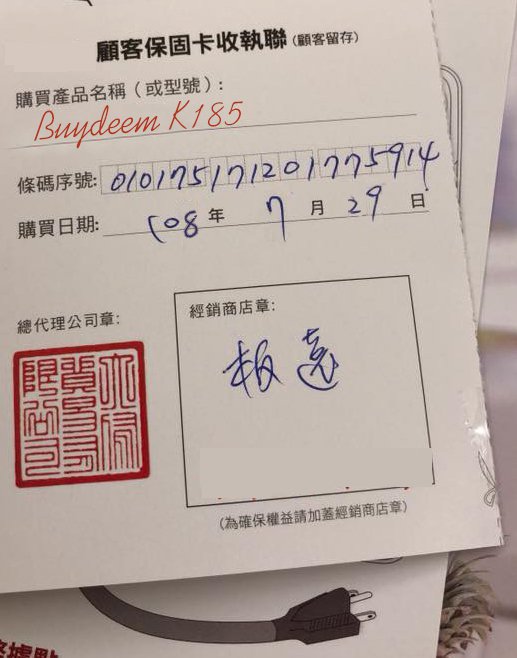 顧客保固卡收執聯(顧客留存)
購買產品名稱(或型號):
Buydeem K185
條碼序號: 010175171201775914
購買日期: 108年 7月 29日
總代理公司章:
經銷商店章:
板遠
(為確保權益請加蓋經銷商店章)